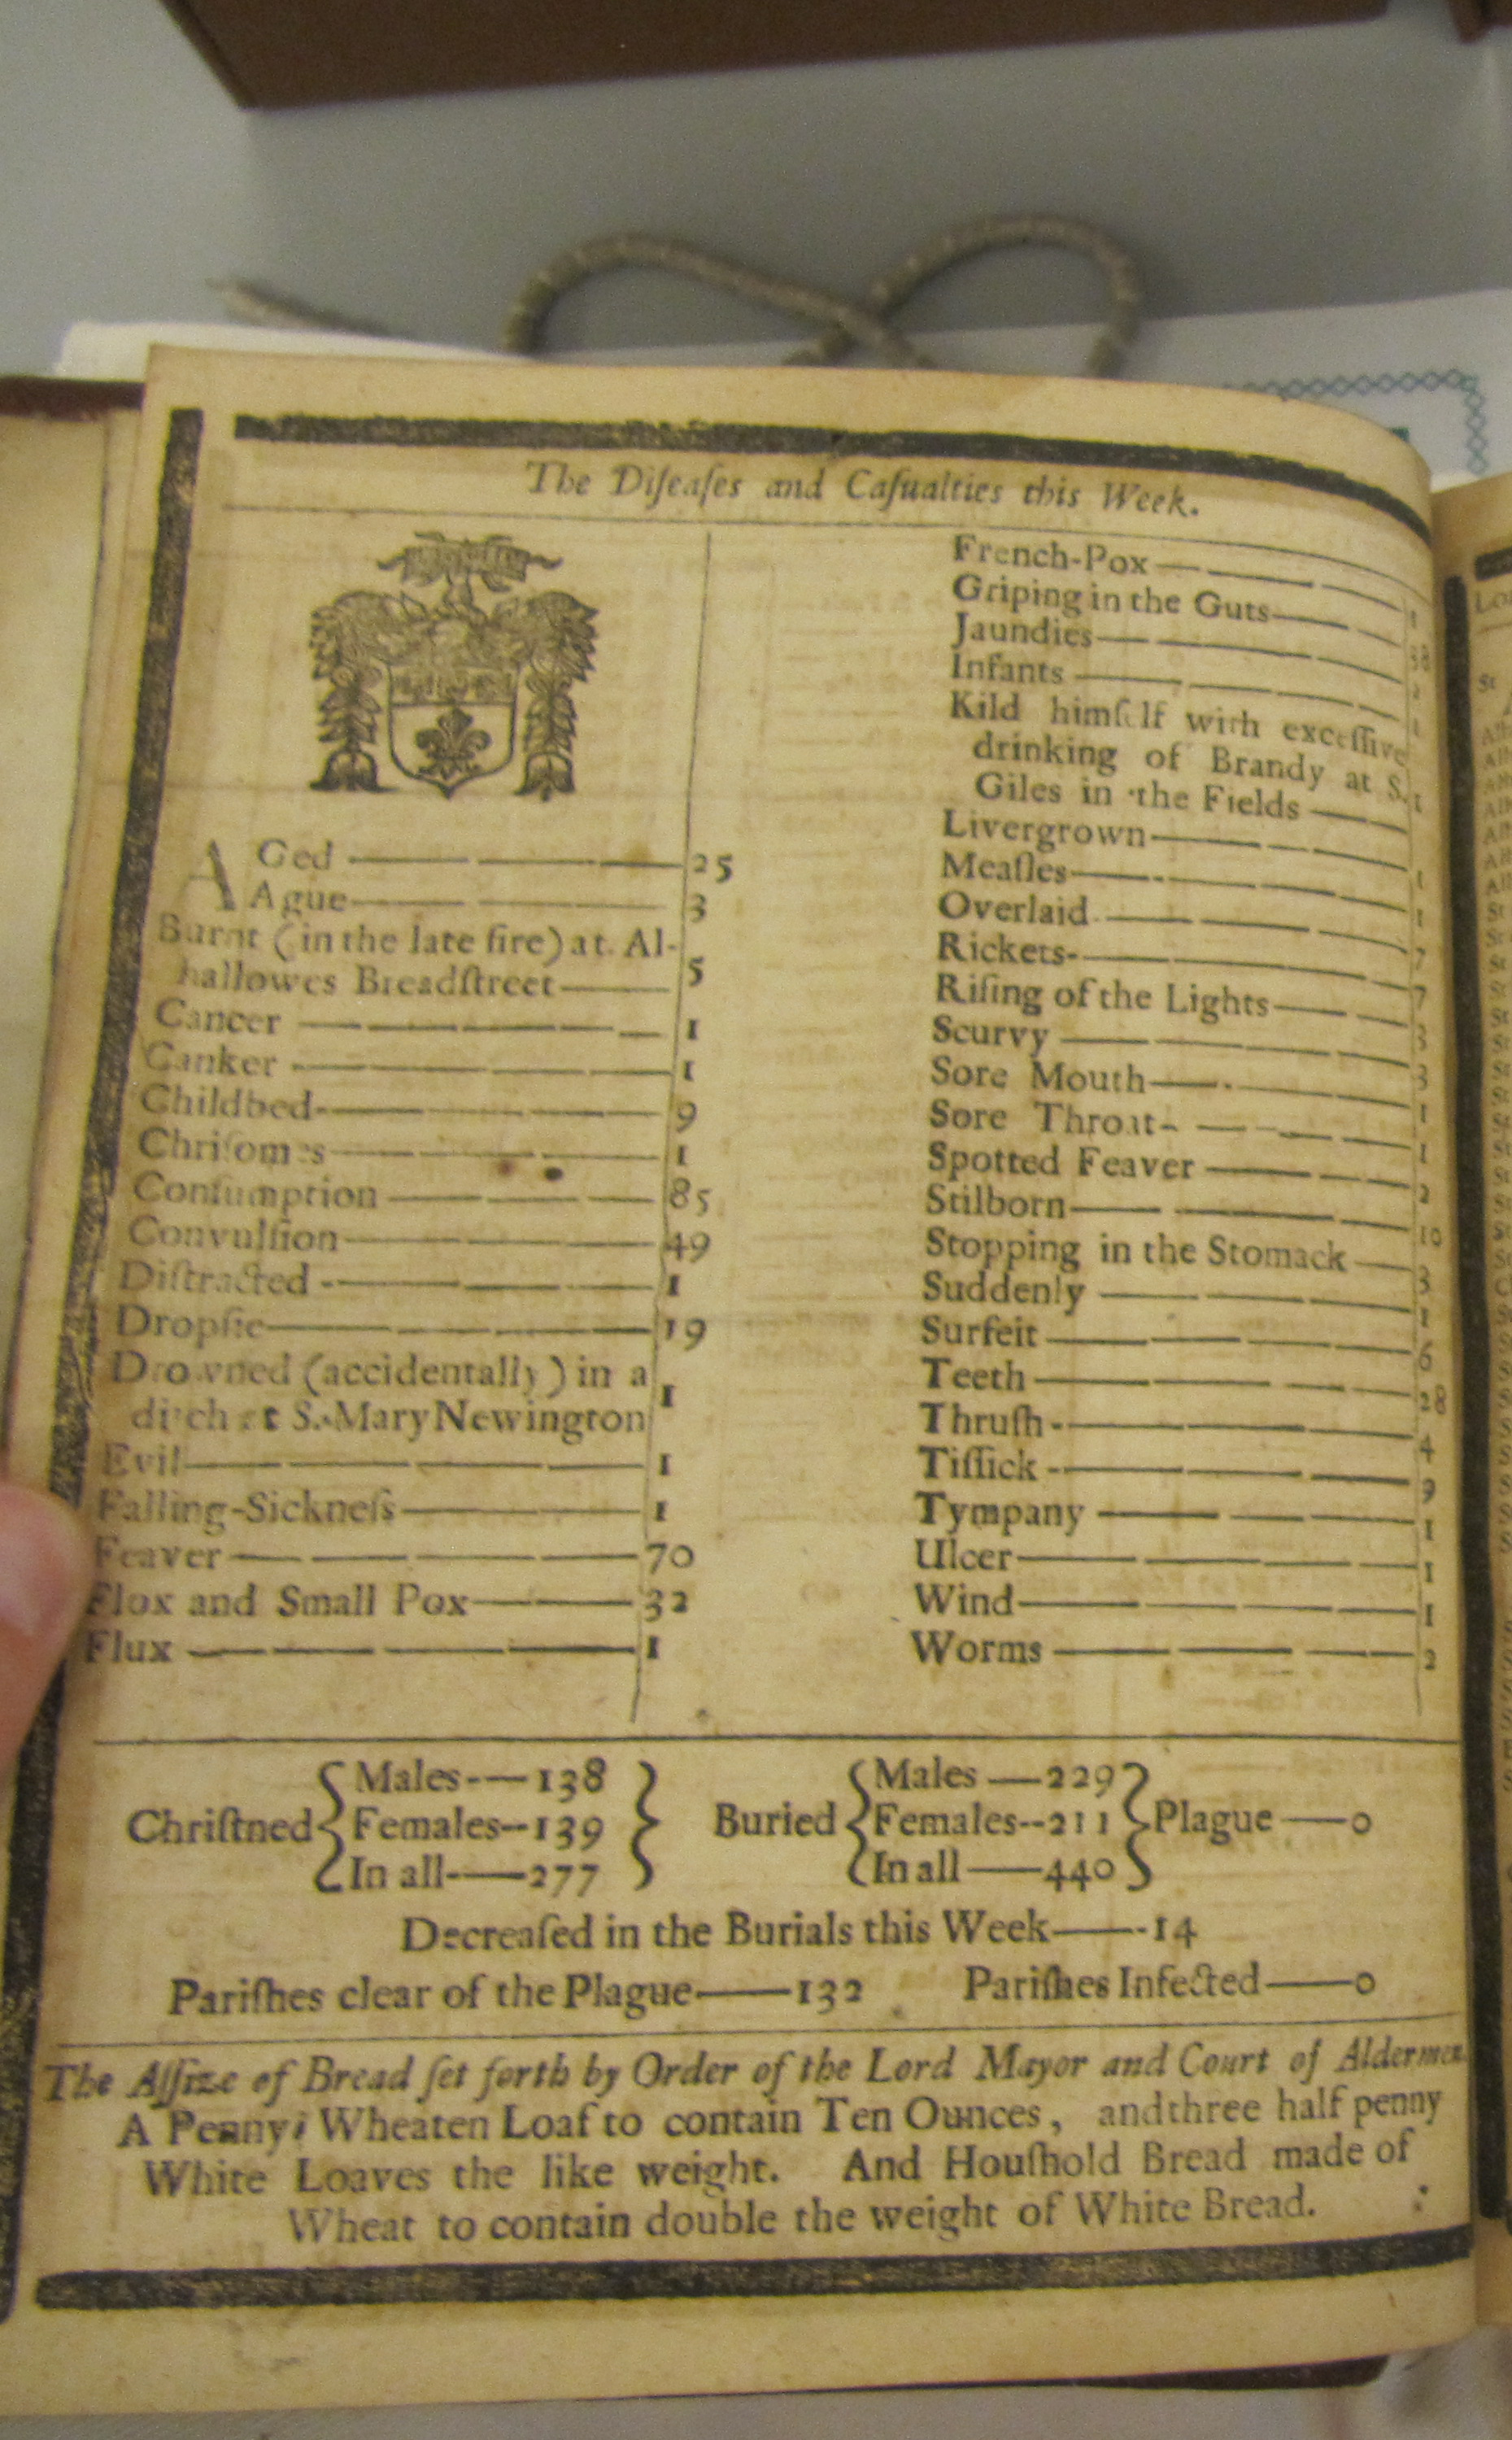 The Diſeaſes and Caſualties this Week.
AGed 25
Ague 3
Burnt (in the late fire) at Al-
hallowes Breadſtreet 5
Cancer 1
Canker 1
Childbed 9
Chriſomes 1
Conſumption 85
Convulſion 49
Diſtracted 1
Dropſie 19
Drowned (accidentally) in a
ditch at S. Mary Newington 1
Evil 1
Falling-Sickneſs 1
Feaver 70
Flox and Small Pox 32
Flux 1
French-Pox 1
Griping in the Guts 38
Jaundies 2
Infants 1
Kild himſelf with exceſſive
drinking of Brandy at S.
Giles in the Fields 1
Livergrown 1
Meaſles 1
Overlaid 7
Rickets 7
Riſing of the Lights 3
Scurvy 3
Sore Mouth 1
Sore Throat 1
Spotted Feaver 2
Stilborn 10
Stopping in the Stomack 3
Suddenly 1
Surfeit 6
Teeth 28
Thruſh 4
Tiſſick 9
Tympany 1
Ulcer 1
Wind 1
Worms 2
Chriſtned { Males 138 Females 139 In all 277 }
Buried { Males 229 Females 211 In all 440 } Plague 0
Decreaſed in the Burials this Week 14
Pariſhes clear of the Plague 132 Pariſhes Infected 0
The Aſſize of Bread ſet forth by Order of the Lord Mayor and Court of Aldermen.
A Penny Wheaten Loaf to contain Ten Ounces, and three half penny
White Loaves the like weight. And Houſhold Bread made of
Wheat to contain double the weight of White Bread.